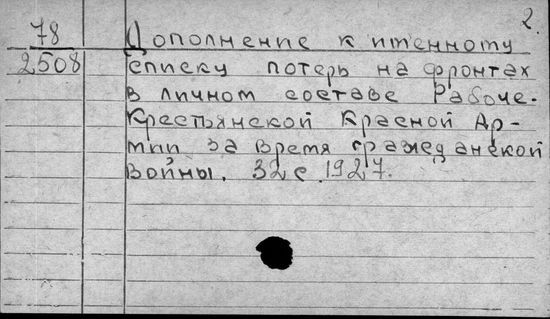 2.
78
2508
Дополнение к именному
списку потерь на фронтах
в личном составе Рабоче-
Крестьянской Красной Ар-
мии за время гражданской
войны. 32 с. 1927.